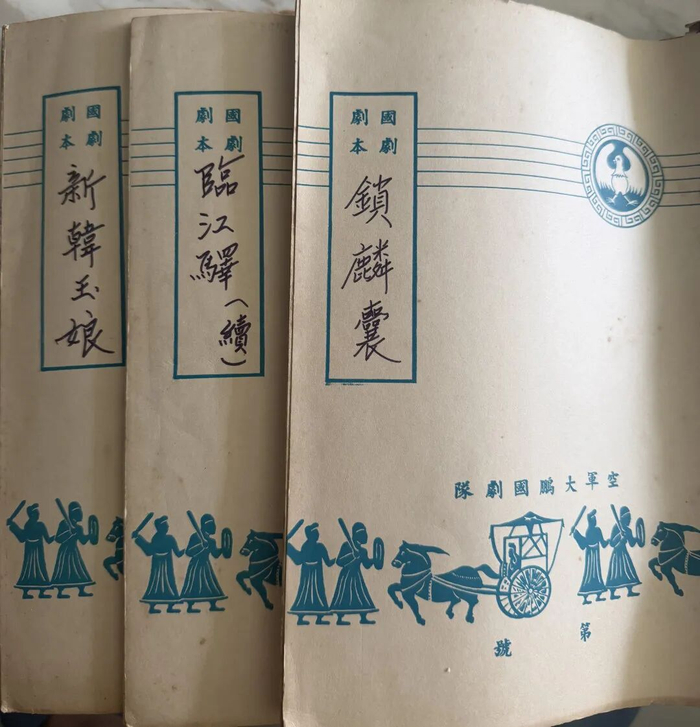 國劇
劇本
新韓玉娘
國劇
劇本
臨江驛（續）
國劇
劇本
鎖麟囊
空軍大鵬國劇隊
第
號